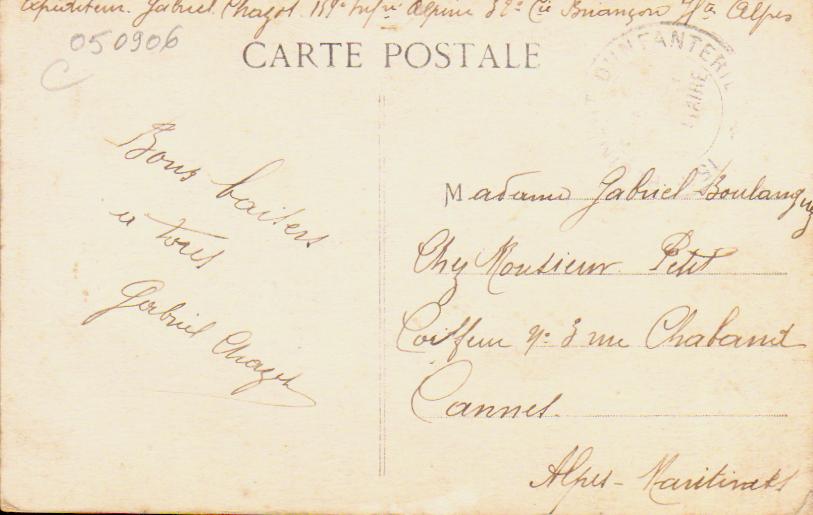 Expéditeur. Gabriel Chazot 159e Infie Alpine 32e Cie Briançon Htes Alpes
050906
C
CARTE POSTALE
D'INFANTERIE
Bons baisers
a tous
Gabriel Chazot
Madame Gabriel
Chez Monsieur Petit
Coiffeur No 3 rue Chabaud
Cannes.
Alpes-Maritimes